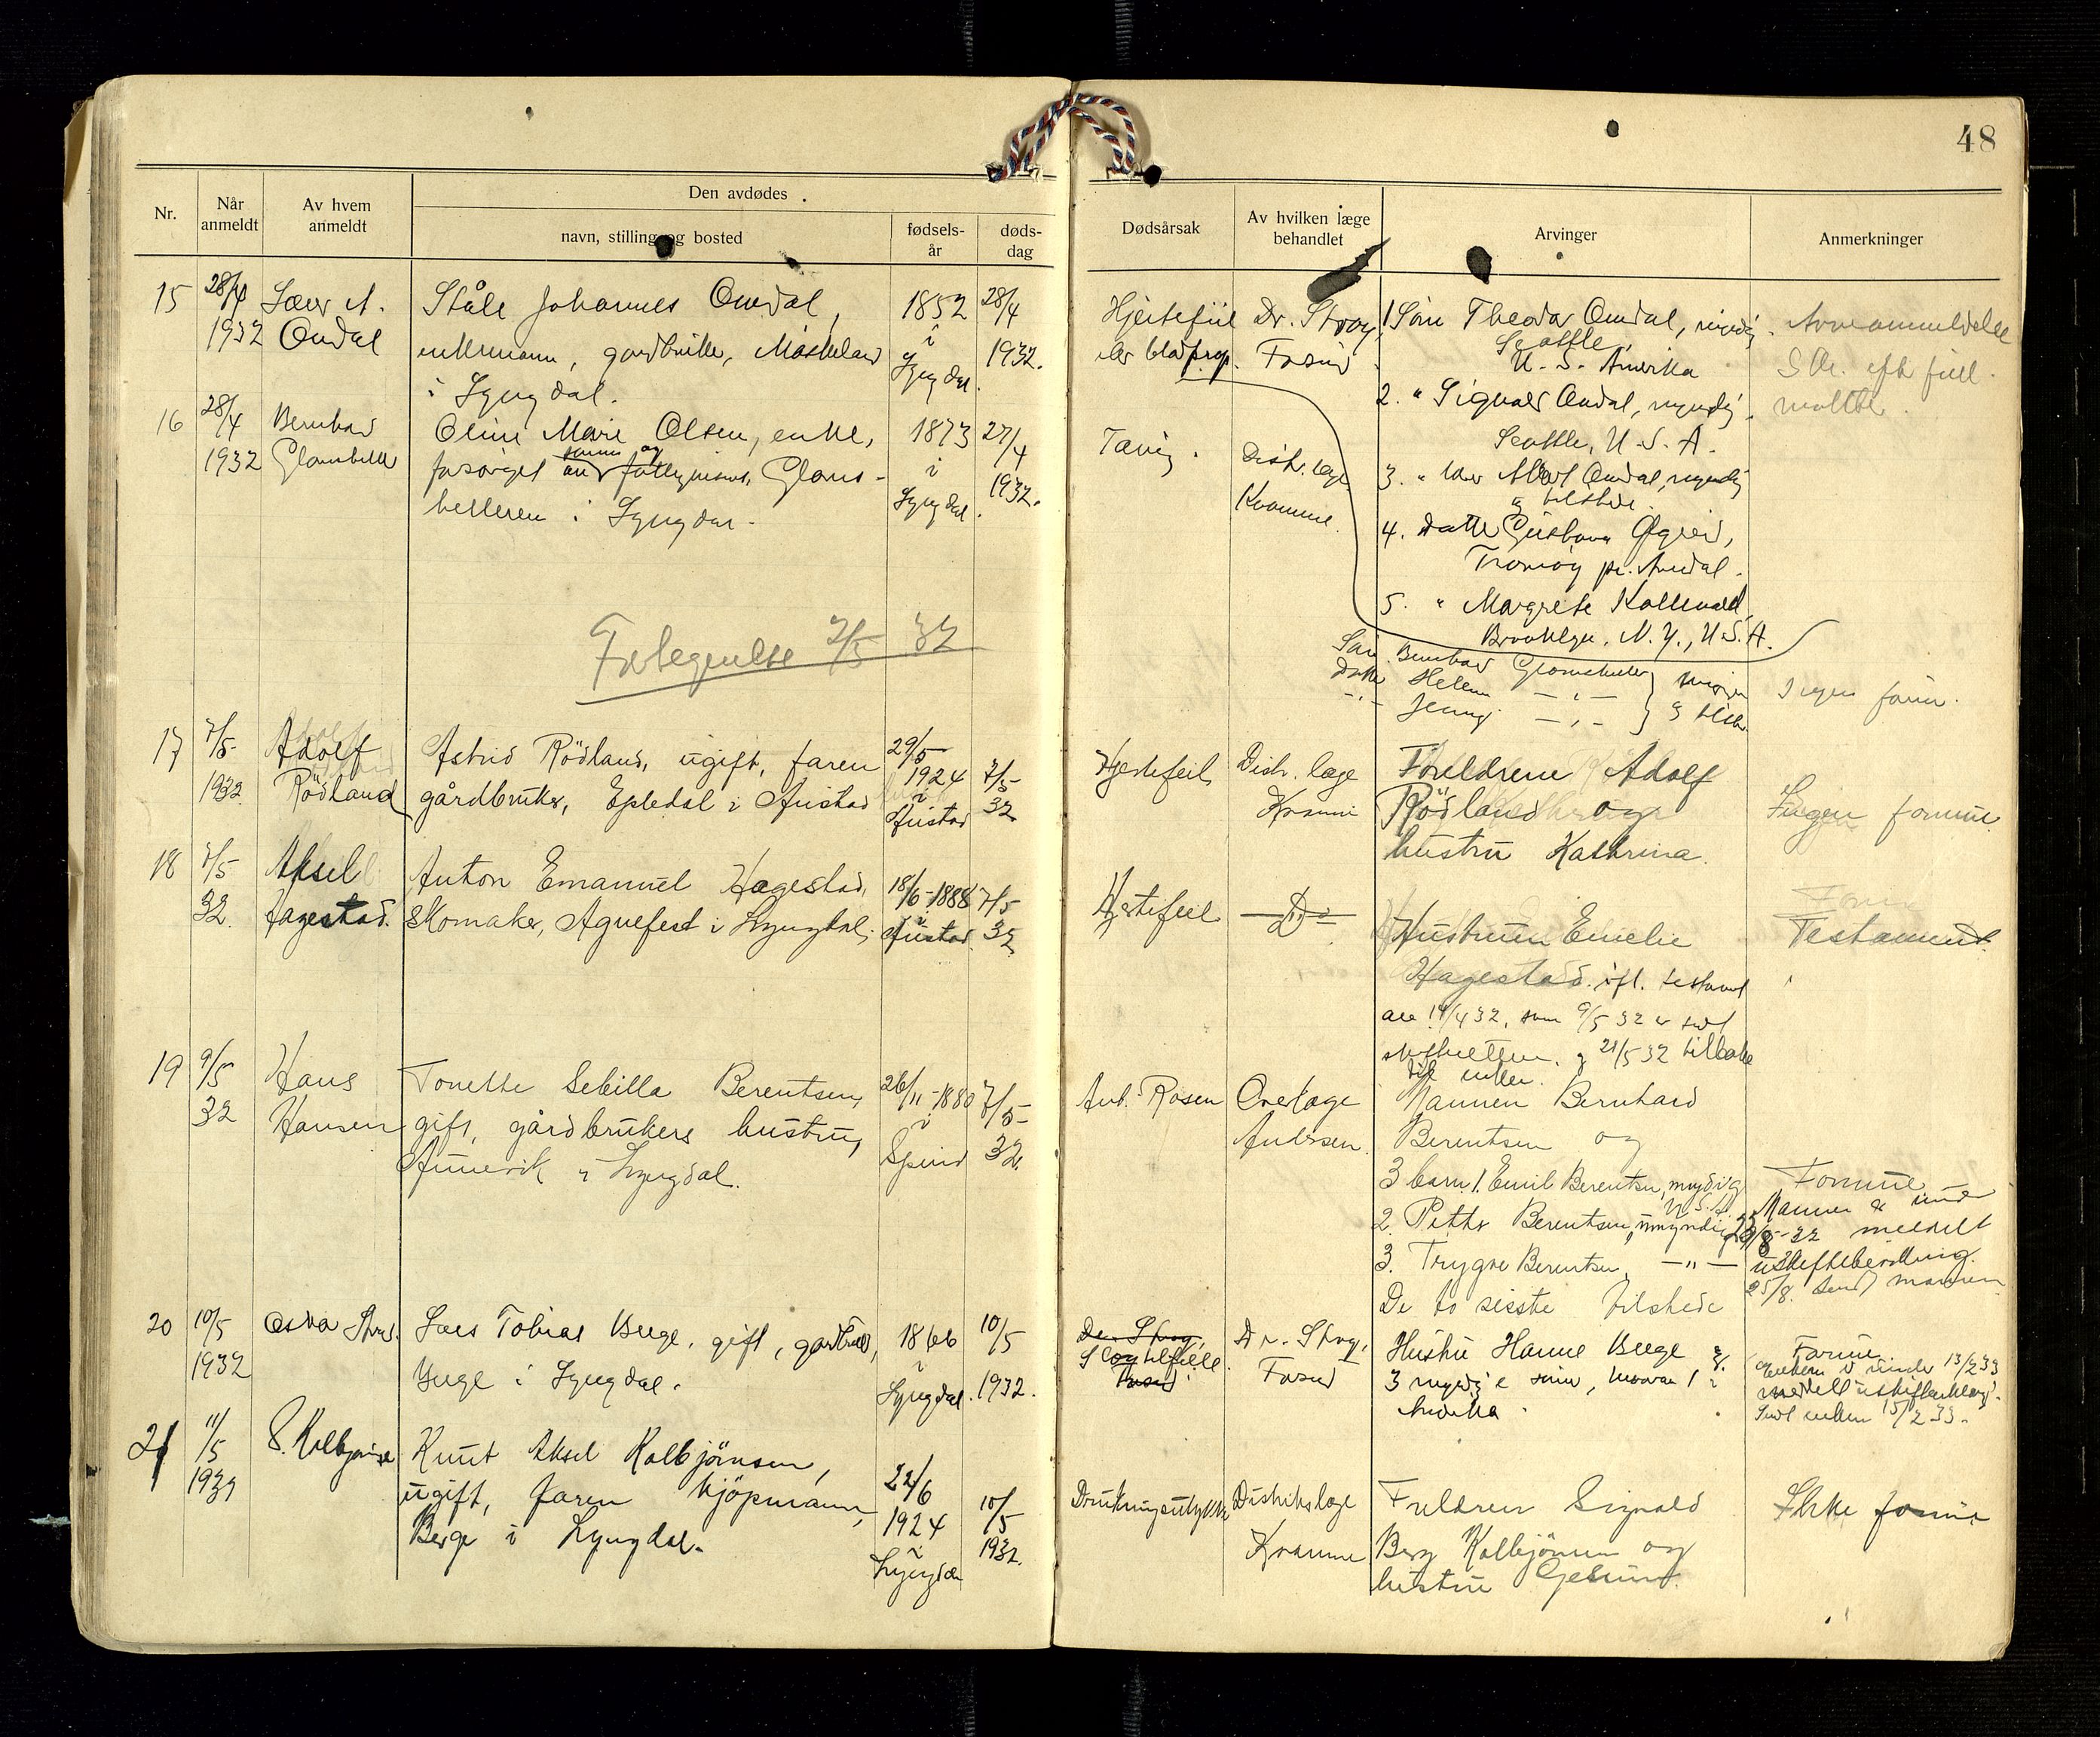 48
Nr.
Når anmeldt
Av hvem anmeldt
Den avdødes
navn, stilling og bosted
fødsels-år
døds-dag
Dødsårsak
Av hvilken læge behandlet
Arvinger
Anmerkninger
15 28/4 1932
Omdal
Ståle Johannes Omdal,
enkemann, gardbruker,
i Lyngdal.
1852 i Lyngdal.
28/4 1932.
Hjertefeil
Dr. Stray,
Farsund
1. Søn Theodor Omdal, myndig,
Seattle,
U. S. Amerika
2. " Sigvald Omdal, myndig,
Seattle, U. S. A.
3. " Omdal, myndig
og tilstede.
4. Datter Gustava
Tromøy pr. Arendal.
5. " Margrete
Brooklyn, N. Y., U. S. A.
16 28/4 1932
Bernhard
Oline Marie Olsen, enke,
forsørget av
i Lyngdal.
1873 i Lyngdal.
27/4 1932.
Tæring.
Distr. læge
Kvamme.
Søn Bernhard
Datter Helene — " —
— " — Jenny — " —
Ingen formue.
7/5 32
17 7/5 1932
Adolf
Rödland
Astrid Rödland, ugift, faren
gårdbruker, Epledal i Austad
29/5 1924 i Austad
7/5 32
Hjertefeil
Distr. læge
Kvamme
Foreldrene Adolf
Rödland og
hustru Kathrina.
Ingen formue.
18 7/5 32.
Aksel
Hagestad.
Anton Emanuel Hagestad,
skomaker, Agnefest i Lyngdal,
18/6-1888 i Austad.
7/5 32
Hjertefeil
— D —
Hustruen Emelie
Hagestad. ifl. testament
av 14/4 32, som 9/5 32 er sendt
skifteretten. og 21/5 32 tilbake
til enken.
Testament.
19 9/5 32
Hans
Hansen
Tonette Sebilla Berentsen,
gift, gårdbrukers hustru,
i Lyngdal.
26/11-1880 i Spind
7/5 32.
Ant. Rosen
Overlæge
Andersen.
Mannen Bernhard
Berentsen og
3 barn 1. Emil Berentsen, myndig
U. S. A.
2. Petter Berentsen, umyndig
3. Trygve Berentsen, — " —
De to siste tilstede
Formue
Mannen er under
meddelt
uskiftebevilling.
25/8. sendt mannen
20 10/5 1932
Lars Tobias Berge, gift, gardbruker,
Berge i Lyngdal.
1866 i Lyngdal.
10/5 1932.
Dr. Stray,
Farsund
Hustru Hanne Berge og
3 myndige sønner, hvorav 1 i
Amerika.
Formue.
Enken er under 13/2 33
meddelt uskiftebevilling.
Sendt enken 15/2 33.
21 11/5 1932
Knut Aksel Kolbjörnsen,
ugift, faren kjöpmann,
Berge i Lyngdal.
22/6 1924 i Lyngdal
10/5 1932.
Drukningsulykke
Distriktslæge
Kvamme
Foreldrene Sigvald
Berg Kolbjörnsen og
hustru
Ikke formue